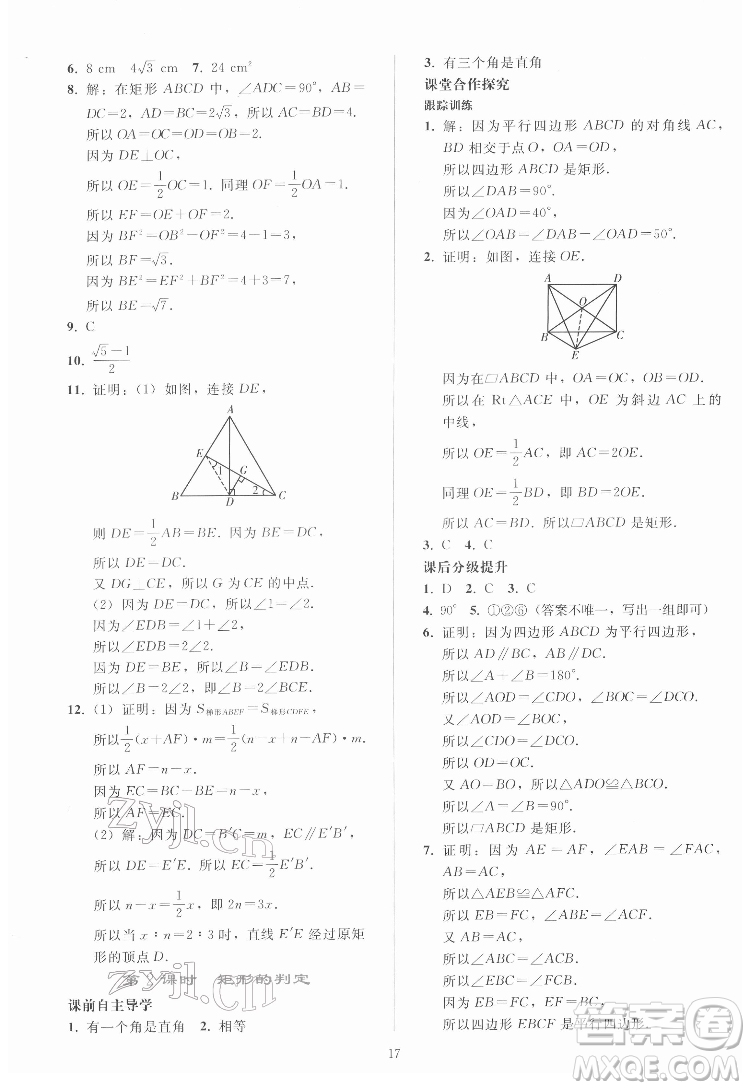 6. 8 cm 4√3 cm 7. 24 cm²
8. 解：在矩形 ABCD 中，∠ADC=90°，
DC=2，AD=BC=2√3．
所以 OA=OC=OD=OB=2．
因为 DE⊥OC，
所以 OE=1/2 OC=1．同理 OF=1/2 OA=1．
所以 EF=OE+OF=2．
因为 BF²=OB²-OF²=4-1=3，
所以 BF=√3．
因为 BE²=EF²+BF²=4+3=7，
所以 BE=√7．
9. C
10. (√5-1)/2
11. 证明：(1) 如图，连接 DE，
A
E
1
G
B
D
2
C
则 DE=1/2 AB=BE．因为 BE=DC，
所以 DE=DC．
又 DG⊥CE，所以 G 为 CE 的中点．
(2) 因为 DE=DC，所以∠1=∠2．
因为∠EDB=∠1+∠2，
所以∠EDB=2∠2．
因为 DE=BE，所以∠B=∠EDB．
所以∠B=2∠BCE．
12. (1) 证明：因为 S梯形ABEF=S梯形CDFE，
所以 1/2(x+AF)·m=1/2(n+EC)·m．
所以 AF=n-x．
因为 EC=BC-BE=n-x，
所以 AF=EC．
(2) 解：因为 DC=B'C=m，EC∥E'B'，
所以 DE=E'E．所以 EC=1/2 E'B'．
所以 n-x=1/2 x，即 2n=3x．
所以当 x∶n=2∶3 时，直线 E'E 经过原矩
形的顶点 D．
第2课时 矩形的判定
课前自主导学
1. 有一个角是直角 2. 相等
3. 有三个角是直角
课堂合作探究
跟踪训练
1. 解：因为平行四边形 ABCD 的对角线 AC，
BD 相交于点 O，OA=OD，
所以四边形 ABCD 是矩形．
所以∠DAB=90°．
因为∠OAD=40°，
所以∠OAB=∠DAB-∠OAD=50°．
2. 证明：如图，连接 OE．
A D
O
B C
E
因为在▱ABCD 中，AO=OC，BO=OD．
所以在 Rt△ACE 中，OE 为斜边 AC 上的
中线，
所以 OE=1/2 AC，所以 AC=2OE．
同理 OE=1/2 BD，即 BD=2OE．
所以 AC=BD．所以▱ABCD 是矩形．
3. C 4. C
课后分级提升
1. D 2. C 3. C
4. 90° 5. ①②⑥（答案不唯一，写出一组即可）
6. 证明：因为四边形 ABCD 为平行四边形，
所以 AD∥BC，AD=BC．
所以∠A+∠B=180°．
所以∠AOD=∠CDO，∠BOC=∠DCO．
又∠AOD=∠BOC，
所以∠CDO=∠DCO．
所以 OD=CO．
又 AO=BO，所以△ADO≌△BCO．
所以∠A=∠B=90°．
所以▱ABCD 是矩形．
7. 证明：因为 AE=AF，∠EAB=∠FAC，
AB=AC，
所以△AEB≌△AFC．
所以 EB=FC，∠ABE=∠ACF．
又 AB=AC，
所以∠ABC=∠ACB．
所以∠EBC=∠FCB．
所以∠EBC+∠FCB=180°．
所以四边形 EBCF 是平行四边形．
17
zyjl.cn
zyjl.cn
答案卷
MXQE.COM